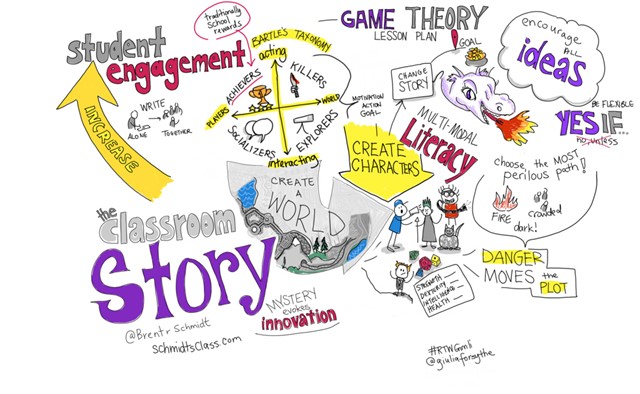 student
engagement
INCREASE
WRITE
ALONE
TOGETHER
traditionally
school
rewards
BARTLE'S TAXONOMY
acting
ACHIEVERS
KILLERS
PLAYERS
WORLD
SOCIALIZERS
EXPLORERS
interacting
GAME THEORY
LESSON PLAN
! GOAL
CHANGE
STORY
MOTIVATION
ACTION
GOAL
CREATE
CHARACTERS
MULTI-MODAL
Literacy
encourage
ALL
ideas
BE FLEXIBLE
YES IF...
no, unless
choose the MOST
perilous path!
FIRE
crowded
dark!
DANGER
MOVES the
PLOT
CREATE
A
WORLD
the
classroom
Story
@BrentrSchmidt
SchmidtsClass.com
MYSTERY
evokes
innovation
STRENGTH
DEXTERITY
INTELLIGENCE
HEALTH
@giuliaforsythe